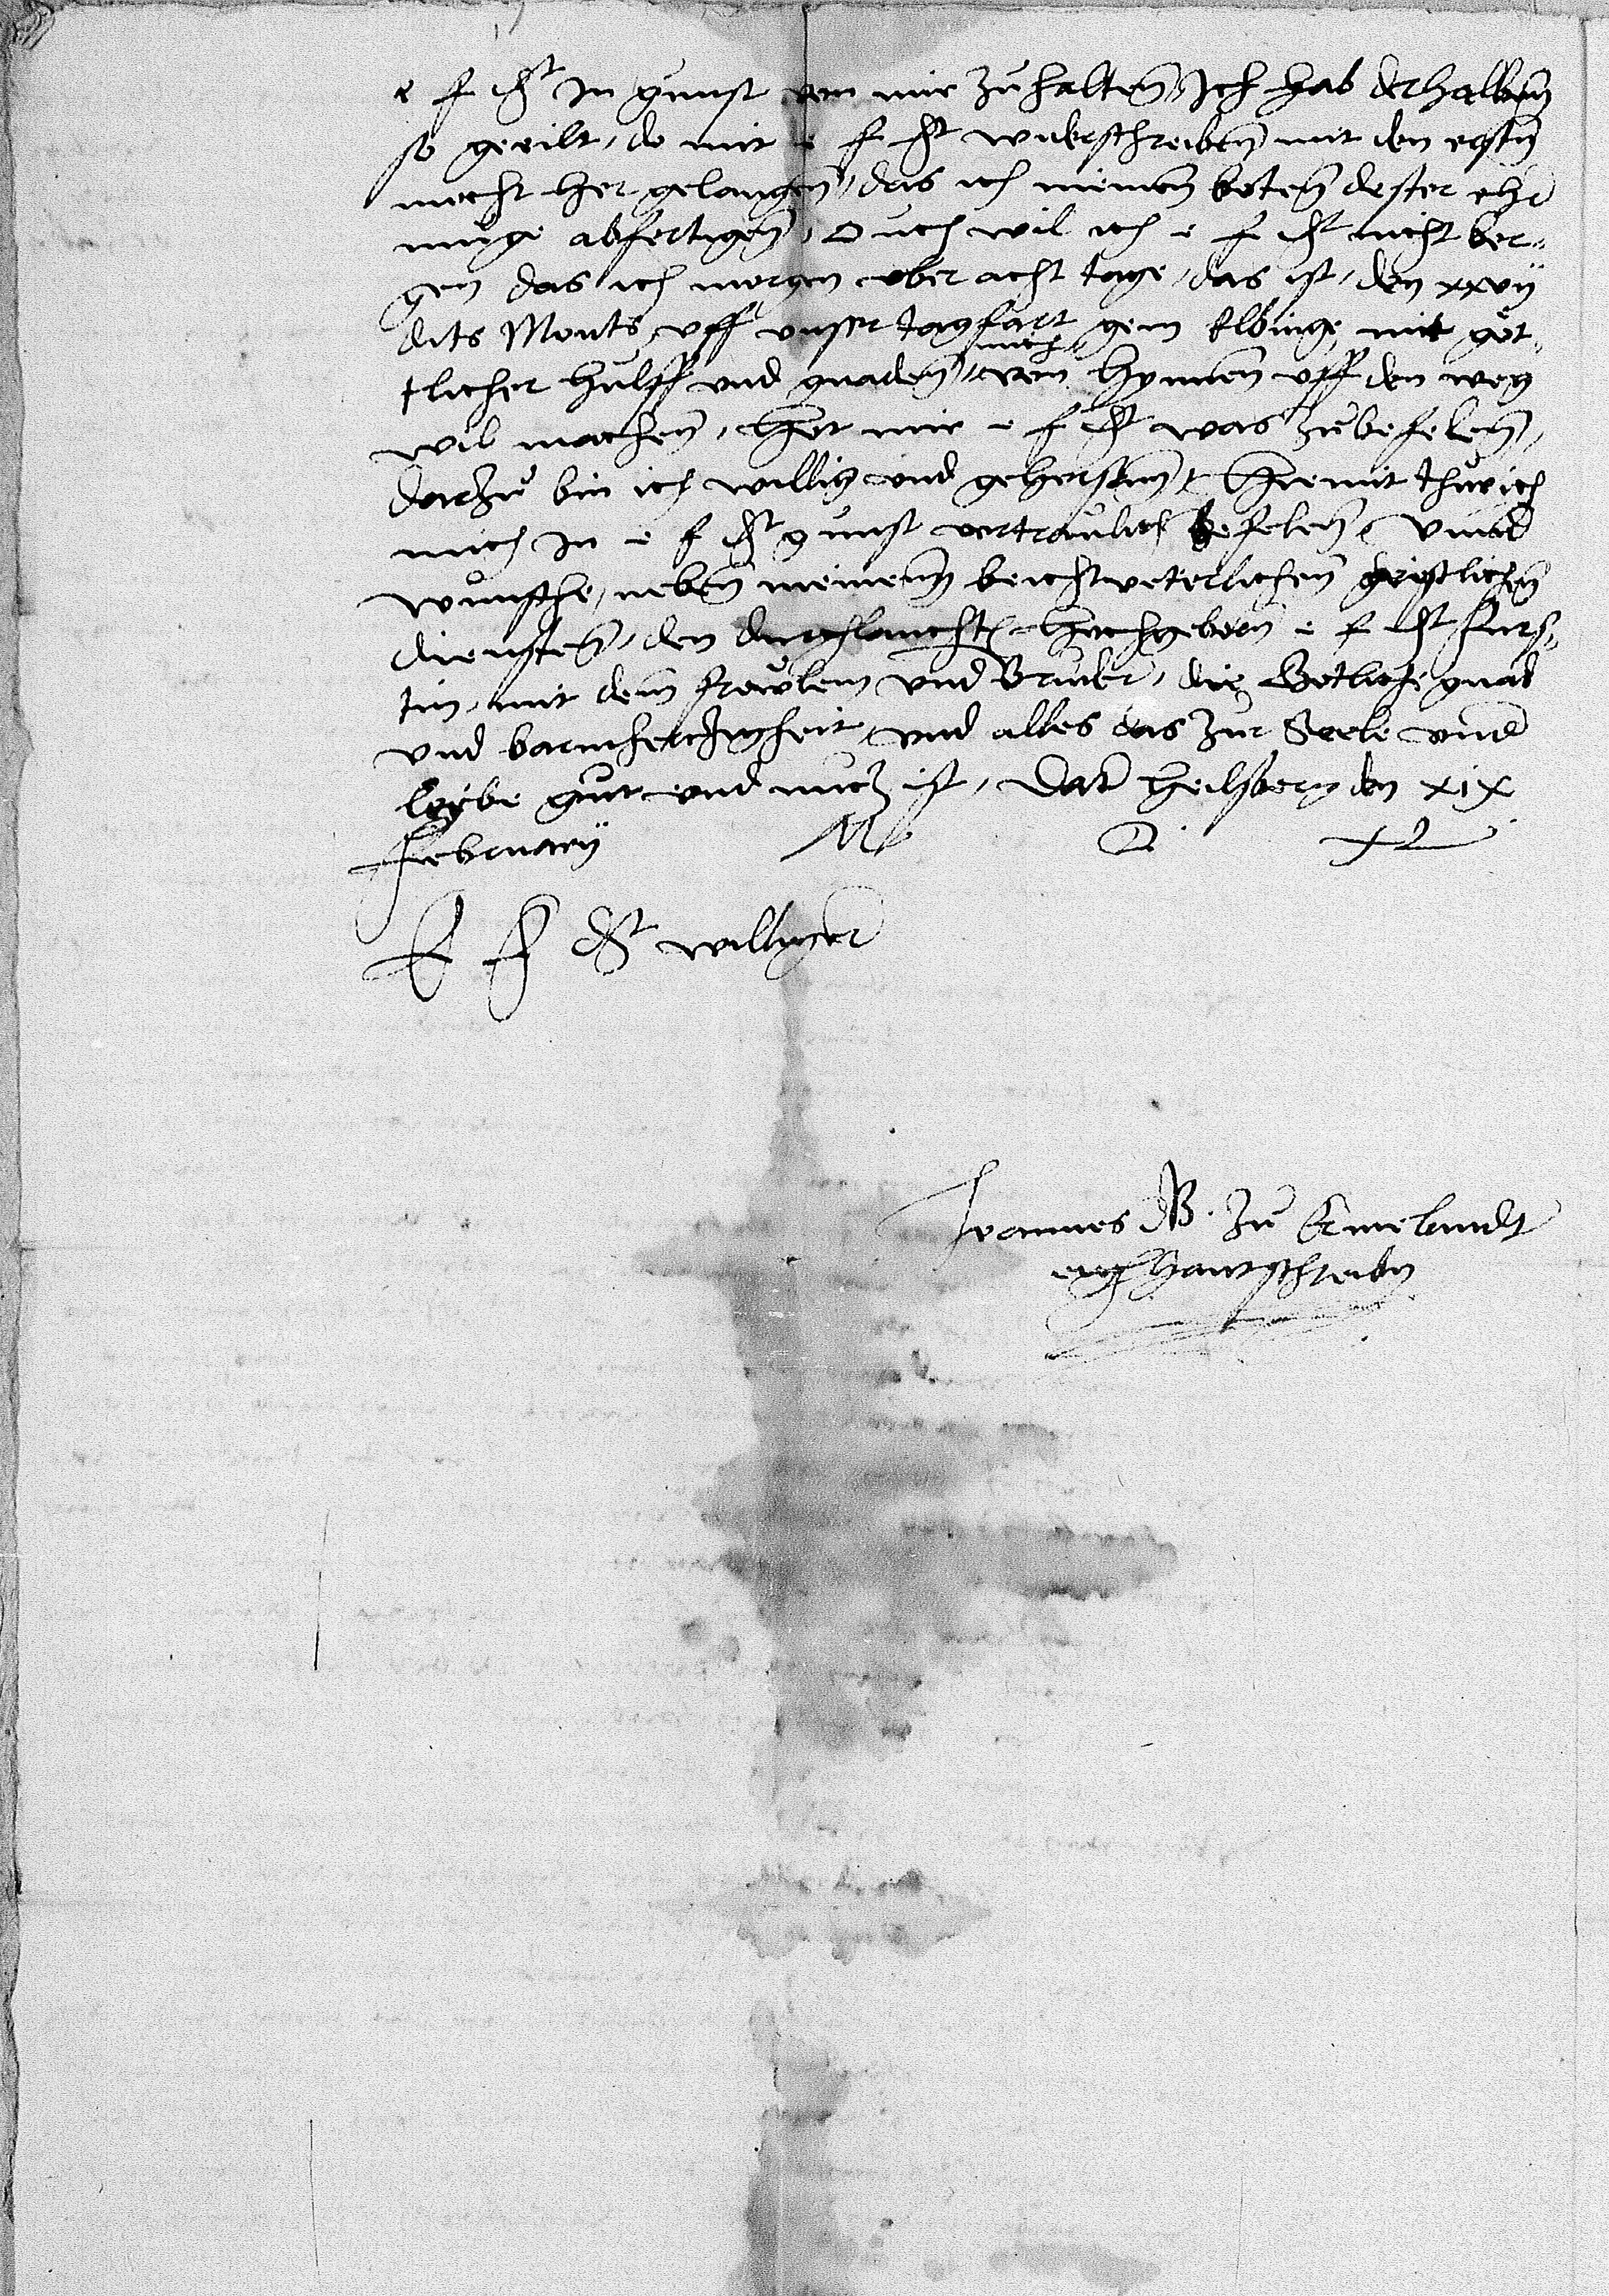 e f d^t In gunst von mir zuhalten, Ich hab derhalben
so geeilt, do mit e f d^t widerschreiben mit den ersten
mocht her gelangen, das ich meinen boten dester ehr
muge abfertigen, Ouch wil ich e f d^t nicht ber-
gen das ich morgen ober acht tage, das ist, den xxvij
dits Monts, uff unser tagfart gem Elbinge, mit göt-
tlicher hulff und gnaden, mich von hynnen uff den weg
wil machen, Hat mir e f d^t was zubefelen,
dorzu bin ich willig und gehorsam, Hiemit thu ich
mich In e f d^t gunst vertraulich befelen, Unnd
wunsche, neben meinenn beichtveterlichen geistlichen
diensten, den durchlauchten hochgeborn e f d^t furs-
tin, mit dem frewlem und Bruder, die Gotliche gnad
und barmherczigheit, und alles das zur Seele und
leybe gut und nucz ist, Dat Heilsberg den xix
February M D XL
E F d^t williger
Joannes B. zu Ermelandt
eygh handtschreiben